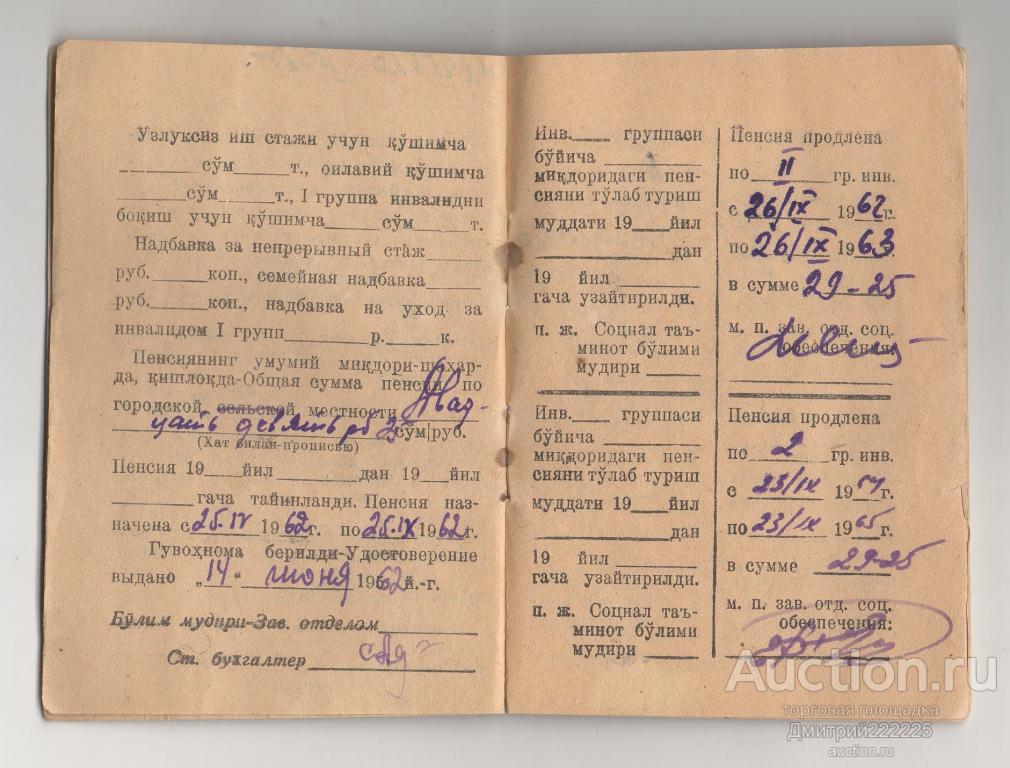 Узлуксиз иш стажи учун қўшимча
______ сўм ____ т., оилавий қўшимча
____ сўм ____ т., I группа инвалидни
боқиш учун қўшимча ____ сўм ____ т.
Надбавка за непрерывный стаж ____
руб. ____ коп., семейная надбавка ____
руб. ____ коп., надбавка на уход за
инвалидом I групп ______ р. ____ к.
Пенсиянинг умумий миқдори-шаҳар-
да, қишлоқда-Общая сумма пенсии по
городской сельской местности Двад-
цать девять рб 25 сўм руб.
(Хат билан-прописью)
Пенсия 19 ___ йил ______ дан 19 ___ йил
______ гача тайинланди. Пенсия наз-
начена с 25.IV 1962г. по 25.IX 1962г.
Гувоҳнома берилди-Удостоверение
выдано „14“ июня 1962 й.-г.
Бўлим мудири-Зав. отделом ______
Ст. бухгалтер ______
Инв. ____ группаси
бўйича ______
миқдоридаги пен-
сияни тўлаб туриш
муддати 19 ___ йил
______ дан
19 йил ______
гача узайтирилди.
п. ж. Социал таъ-
минот бўлими
мудири ____
Пенсия продлена
по II гр. инв.
с 26/IX 1962г.
по 26/IX 1963.
в сумме 29-25
м. п. зав. отд. соц.
обеспечения:
Инв. ____ группаси
бўйича ______
миқдоридаги пен-
сияни тўлаб туриш
муддати 19 ___ йил
______ дан
19 йил ______
гача узайтирилди.
п. ж. Социал таъ-
минот бўлими
мудири ____
Пенсия продлена
по 2 гр. инв.
с 23/IX 1964г.
по 23/IX 1965г.
в сумме 29-25
м. п. зав. отд. соц.
обеспечения:
Auction.ru
торговая площадка
Дмитрий222225
auction.ru